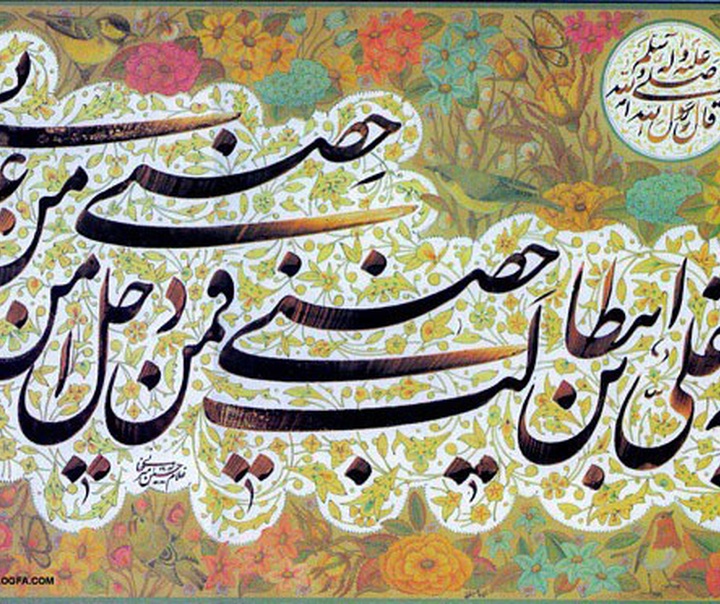 قال رسول الله
صلی الله
علیه و آله و سلم
علی بن ابیطالب حصنی فمن دخل حصنی امن من
OGFA.COM